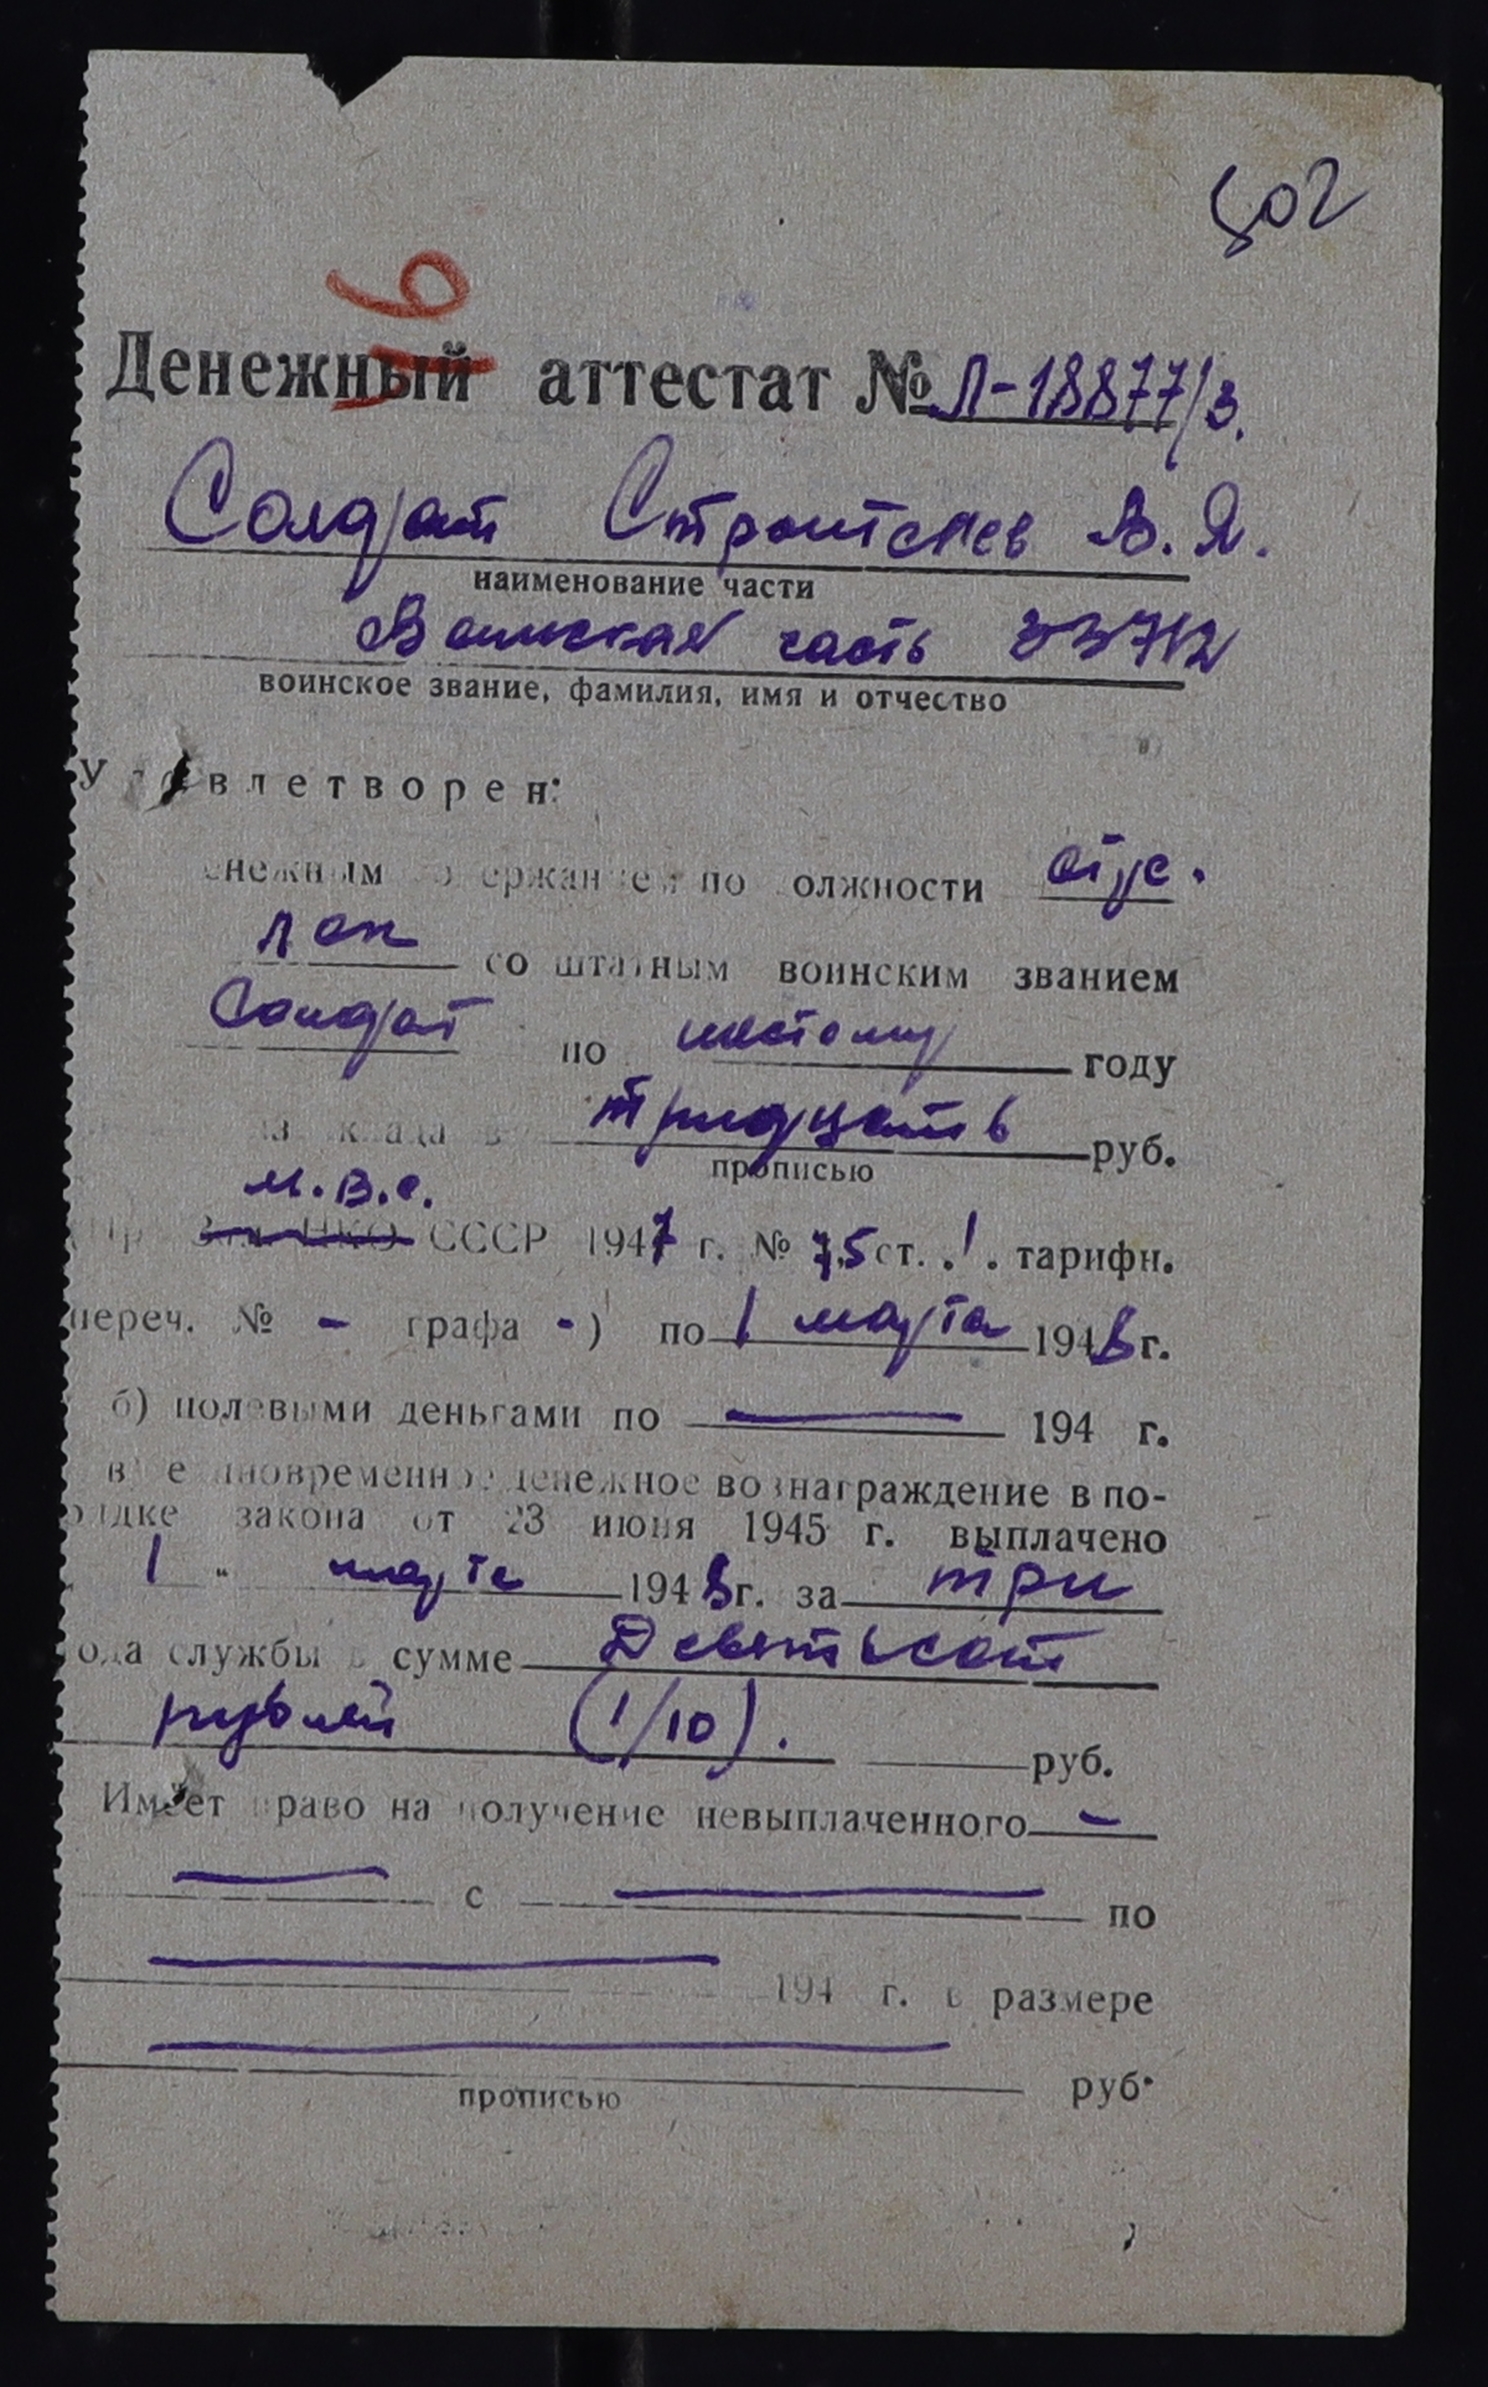 502
16
Денежный аттестат № Л-18877/3.
Солдат Строителев В. Я.
наименование части
Воинская часть 33712
воинское звание, фамилия, имя и отчество
Удовлетворен:
денежным содержанием по должности
со штатным воинским званием
Солдат по шестому году
из оклада в тридцать руб.
прописью
М.В.С.
СССР 1947 г. № 75 ст. 1. тарифн.
переч. № - графа - ) по 1 марта 1948 г.
б) полевыми деньгами по — 194 г.
в) единовременное денежное вознаграждение в по-
рядке закона от 23 июня 1945 г. выплачено
1 " марта 1948 г. за три
года службы в сумме Девятьсот
рублей (1/10). руб.
Имеет право на получение невыплаченного —
— с — по
— 194 г. в размере
— руб.
прописью